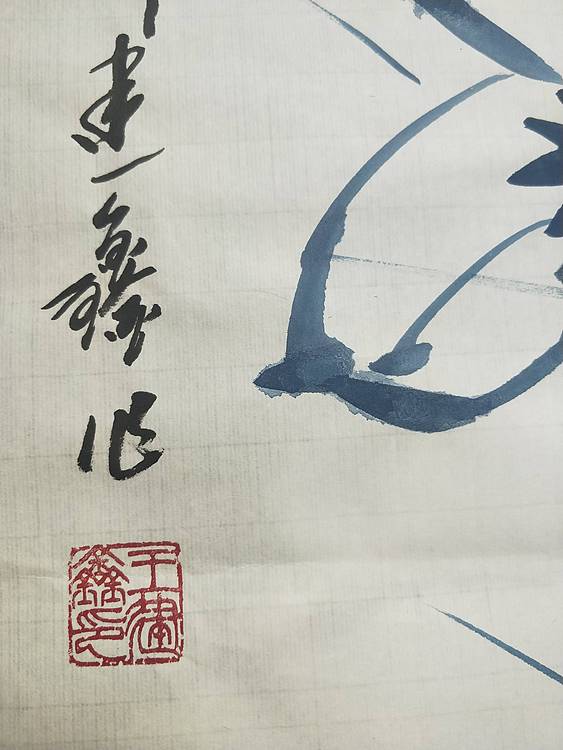 建鑫作
于建
鑫印